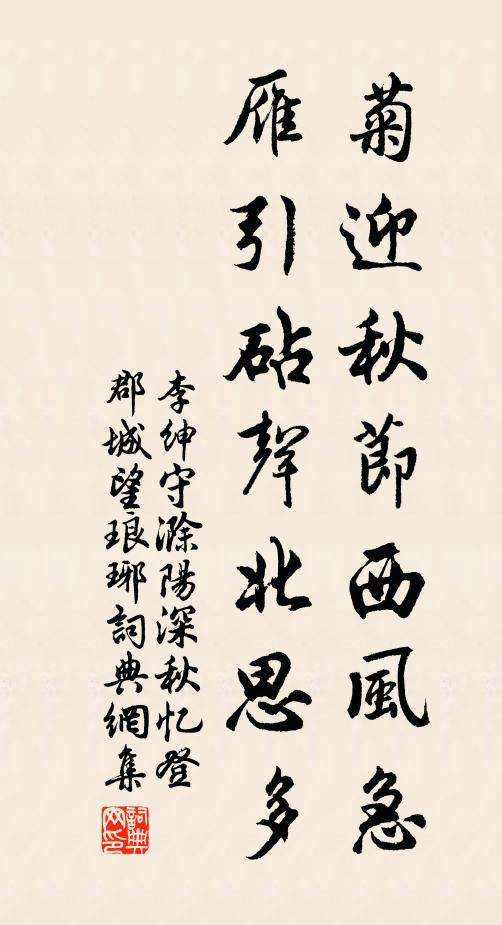 菊迎秋節西風急
雁引砧聲北思多
李紳守滁陽深秋忆登
郡城望琅琊詞典網集
詞典
网印